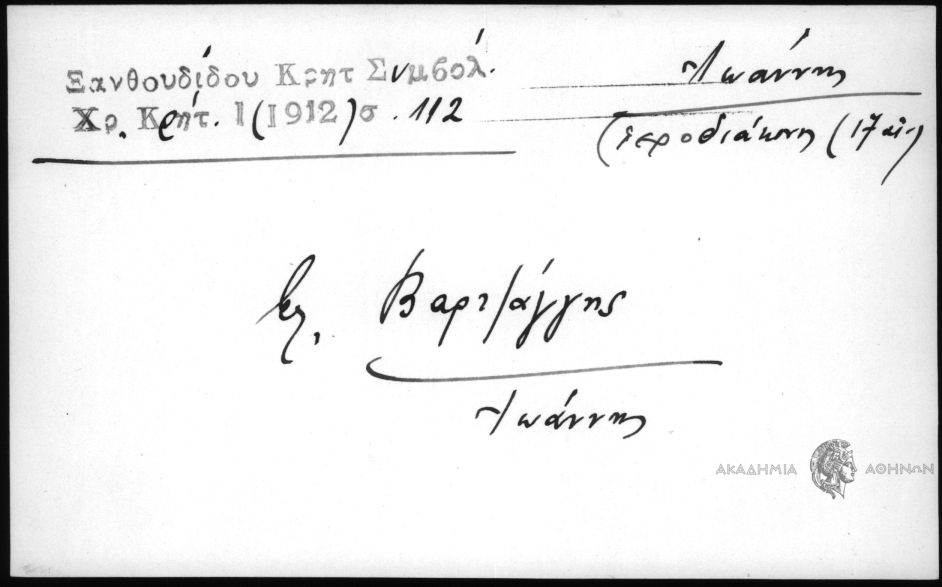 Ξανθουδίδου Κρητ Συμβόλ.
Χρ. Κρήτ. 1 (1912) σ. 112
Ἰωάννης
(ἱεροδιάκονος (17 αἰ.)
βλ. Βαρτζάγγης
Ἰωάννης
ΑΚΑΔΗΜΙΑ ΑΘΗΝΩΝ